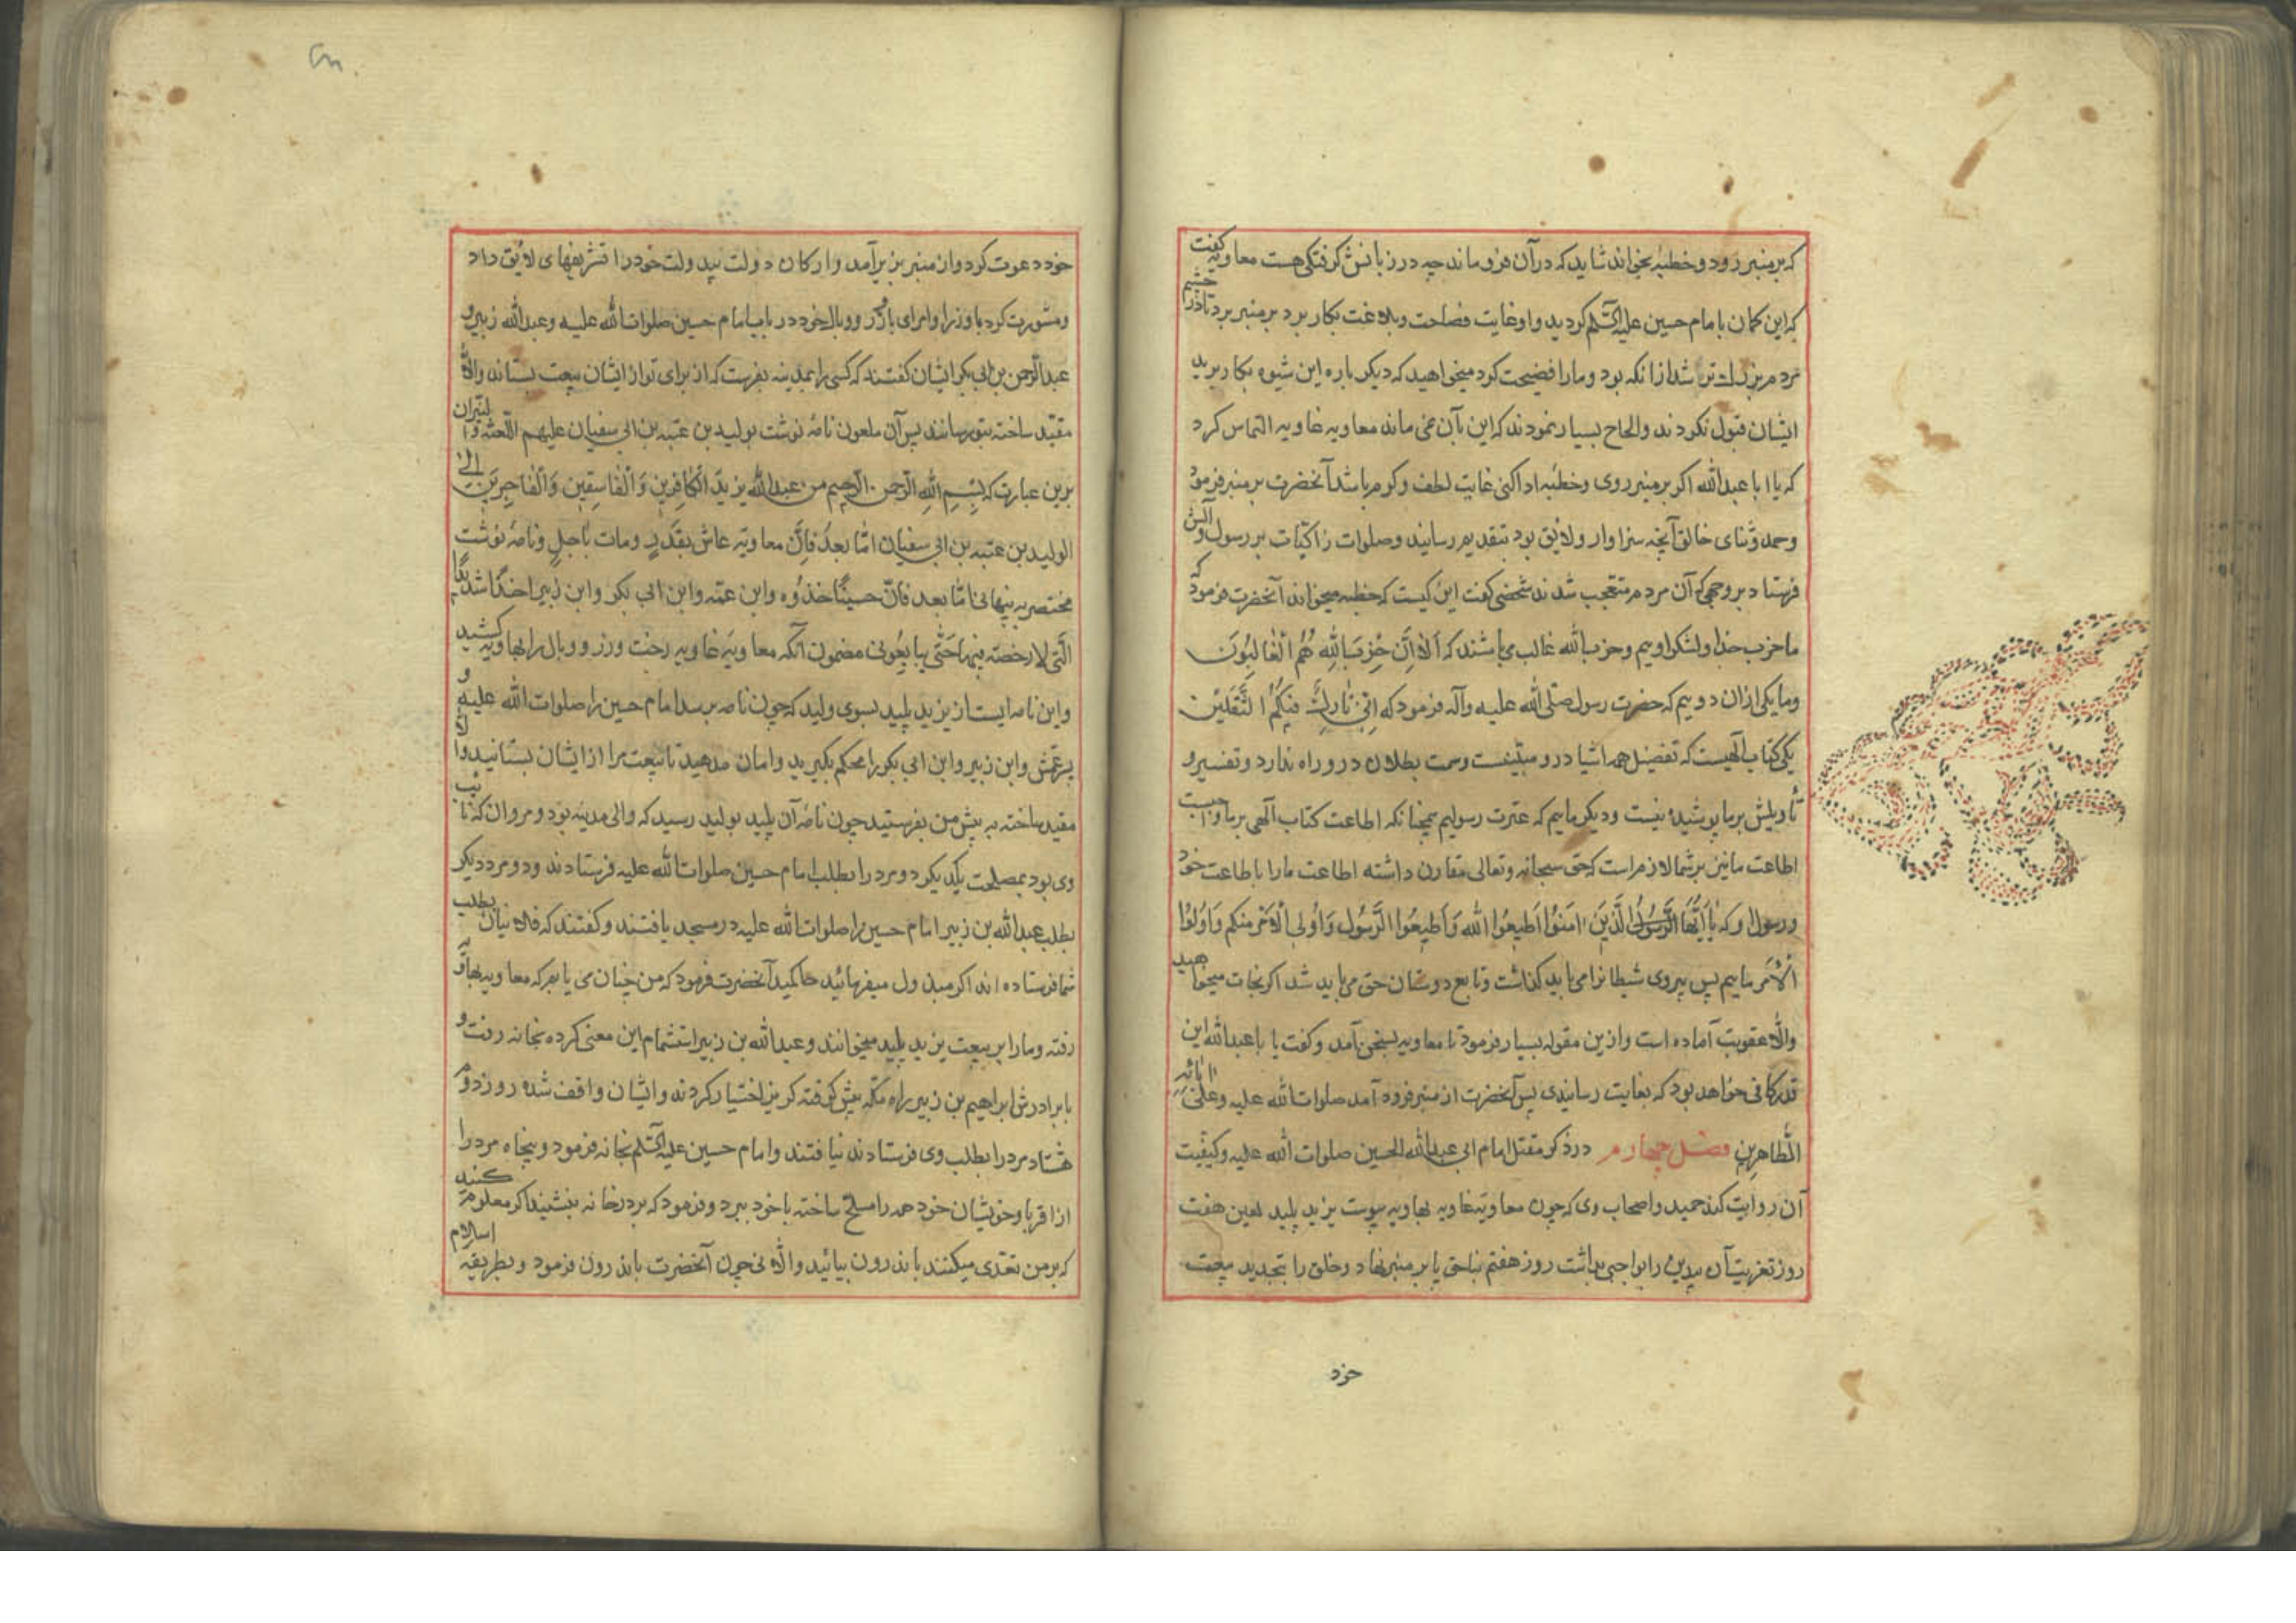 که بر منبر رود و خطبه بخواند شاید که در آن فرو ماند چه در زبانش گرفتگی هست معاویه گفت
که این گمان بامام حسین علیه السّلم کردید و او غایت فصاحت و بلاغت بکار برد بر منبر برد تا در چشم
مردم بزرگ تر شد از انکه بود و ما را فضیحت کرد میخواهید که دیکر باره این شیوه بکار برید
ایشان قبول نکردند و الحاح بسیار نمودند که این بآن نمی ماند معاویه غاویه التماس کرد
که یا ابا عبدالله اکر بر منبر روی و خطبه ادا کنی غایت لطف و کرم باشد آنحضرت بر منبر فرمود
و حمد و ثنای خالق آنچه سزاوار و لایق بود بتقدیم رسانید و صلوات زاکیات بر رسول و آلش
فرستاد بر وجهی که آن مردم متعجب شدند شخصی کفت این کیست که خطبه میخواند آنحضرت فرمود که
ما حزب خدا و لشکر اوییم و حزب الله غالب می باشند که اَلا اِنَّ حِزْبَ اللهِ هُمُ الْغالِبُونَ
و ما یکی از ان دوییم که حضرت رسول صلّی الله علیه وآله فرمود که اِنّی تارِكٌ فیکُمُ الثَّقَلَیْن
یکی کتاب الهیست که تفضیل همه اشیا در و مبیّنست و سمت بطلان در و راه ندارد و تفسیر و
تأویلش بر ما پوشیده نیست و دیکر ماییم که عترت رسولیم همچنانکه اطاعت کتاب الهی بر ما واجبست
اطاعت ما نیز بر شما لازم است که حق سبحانه و تعالی مقارن داشته اطاعت ما را باطاعت خود
و رسول او که یا اَیُّهَا الَّذینَ امَنُوا اَطیعُوا اللهَ وَاَطیعُوا الرَّسُولَ وَاُولِی الْاَمْرِ مِنکُم وَاُولُوا
الْاَمر ماییم پس پیروی شیطان را می باید کذاشت و تابع دوستان حق می باید شد اکر نجات میخواهید
و الّا عقوبت آماده است و ازین مقوله بسیار فرمود تا معاویه بسخن آمد و کفت یا باعبدالله این
قدر کافی خواهد بود که بغایت رسانیدی پس آنحضرت از منبر فرود آمد صلوات الله علیه و علی ابائه
الطّاهرین فصل چهارم در ذکر مقتل امام ابی عبدالله الحسین صلوات الله علیه و کیفیت
آن روایت کند حمید و اصحاب وی که چون معاویه غاویه بهاویه پیوست یزید پلید لعین هفت
روز تعزیت آن بیدین را بواجبی بداشت روز هفتم بناحق پا بر منبر نهاد و خلق را بتجدید ببیعت
خود
خود دعوت کرد و از منبر بزیر آمد و ارکان دولت بیدولت خود را تشریفهای لایق داد
و مشورت کرد با وزرا و امرای با وزر و وبال خود در باب امام حسین صلوات الله علیه و عبدالله زبیر و
عبدالرّحمن بن ابی بکر ایشان کفتند که کسی را بمدینه بفرست که از برای تو از ایشان بیعت بستاند و الّا
مقیّد ساخته بتو رسانند پس آن ملعون نامه نوشت بولید بن عتبه بن ابی سفیان علیهم اللّعنه و النیران
برین عبارت که بِسْمِ اللهِ الرّحمنِ الرّحیم من عبدالله یزیدَ الْکافِرینَ وَالْفاسِقینَ وَالْفاجِرینَ الی
الولید بن عتبه بن ابی سفیان امّا بعدُ فاِنَّ معاویه عاش بقَدَرٍ ومات باجلٍ و نامهٔ نوشت
مختصر به پنهانی امّا بعد فانّ حسینًا خذوُه وابن عمّه وابن ابی بکر وابن زبیر اخذًا شدیدًا
الّتی لا رخصة فیها حَتّی یبایِعُونی مضمون آنکه معاویه غاویه رخت وزر و وبال را بهاویه کشید
و این نامه ایست از یزید پلید بسوی ولید که چون نامه برسد امام حسین را صلوات الله علیه و
پسر عمّش و ابن زبیر و ابن ابی بکر را محکم بکیرید و امان مدهید تا بیعت مرا از ایشان بستانید و الّا
مقید ساخته به پیش من بفرستید چون نامهٔ آن پلید بولید رسید که والی مدینه بود و مروان که نایب
وی بود بمصلحت یکدیکر دو مرد را بطلب امام حسین صلوات الله علیه فرستادند و دو مرد دیکر
بطلب عبدالله بن زبیر امام حسین را صلوات الله علیه در مسجد یافتند و کفتند که فلانیان بطلب
شما فرستاده اند اکر مبذول میفرمائید حاکمید آنحضرت فرمود که من چنان می یابم که معاویه بهاویه
رفته و ما را بر بیعت یزید پلید میخوانند و عبدالله بن زبیر استشمام این معنی کرده بخانه رفت و
با برادرش ابراهیم بن زبیر راه مکّه پیش کرفته کریز اختیار کردند و ایشان واقف شده روز دوم
هشتاد مرد را بطلب وی فرستادند نیافتند و امام حسین علیه السّلم بخانه فرمود و پنجاه مرد را
از اقربا و خویشان خود همه را مسلح ساخته با خود ببرد و فرمود که بر در خانه بنشینید اکر معلوم کنید
که بر من تعدی میکنند باندرون بیائید و الّا نی چون آنحضرت باندرون فرمود و بطریقه اسلام